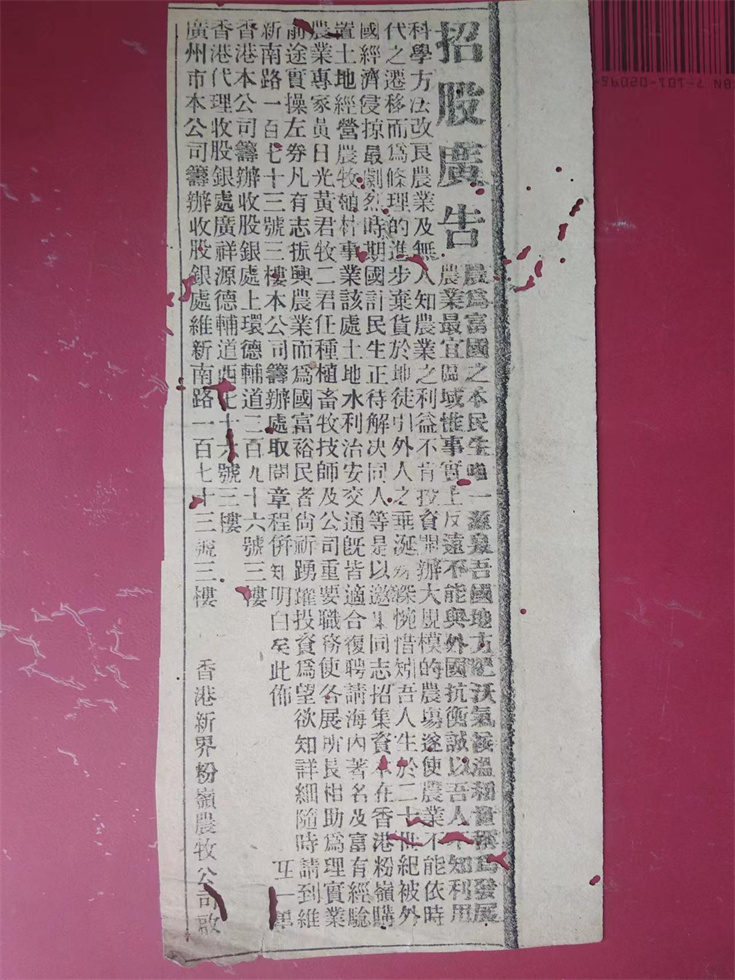 招股廣告
農爲富國之本民生唯一源泉吾國地方肥沃氣候溫和實稱爲發展
農業最宜區域惟事實上反遠不能與外國抗衡誠以吾人不知利用
科學方法改良農業及無人知農業之利益不肯投資開辦大規模的農塲遂使農業不能依時
代之遷移而爲條理的進步棄貨於地徒引外人之垂涎爲深惋惜矧吾人生於二十世紀被外
國經濟侵掠最劇烈時期國計民生正待解决同人等是以邀集同志招集資本在香港粉嶺購
置土地經營農牧植林事業該處土地水利治安交通旣皆適合復聘請海內著名及富有經驗
農業專家黃日光黃君牧二君任種植畜牧技師及公司重要職務使各展所長相助爲理實業
前途實操左劵凡有志振興農業而爲國富裕民者尙祈踴躍投資爲望欲知詳細隨時請到維
新南路一百七十三號三樓本公司籌辦處取閱章程併知明白矣此佈 五一
香港本公司籌辦收股銀處上環德輔道二百九十六號三樓
香港代理收股銀處廣祥源德輔道西七十六號三樓
廣州市本公司籌辦收股銀處維新南路一百七十三號三樓 香港新界粉嶺農牧公司啟
7-101-05095